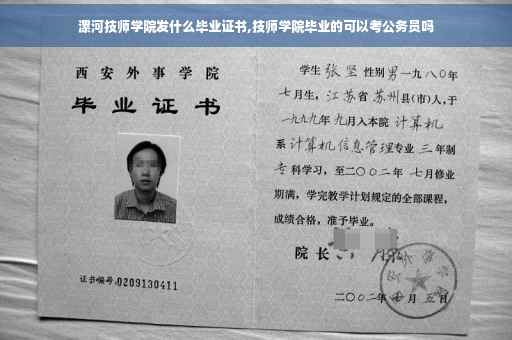 漯河技师学院发什么毕业证书,技师学院毕业的可以考公务员吗
西安外事学院
毕业证书
证书编号:0209130411
学生 张坚 性别男一九八〇年
七月生，江苏省 苏州县(市)人,于
一九九九年 九月入本院 计算机
系 计算机信息管理专业 三 年制
专 科学习，至二〇〇二年 七月修业
期满，学完教学计划规定的全部课程，
成绩合格，准予毕业。
院 长
二〇〇二年 月 五日